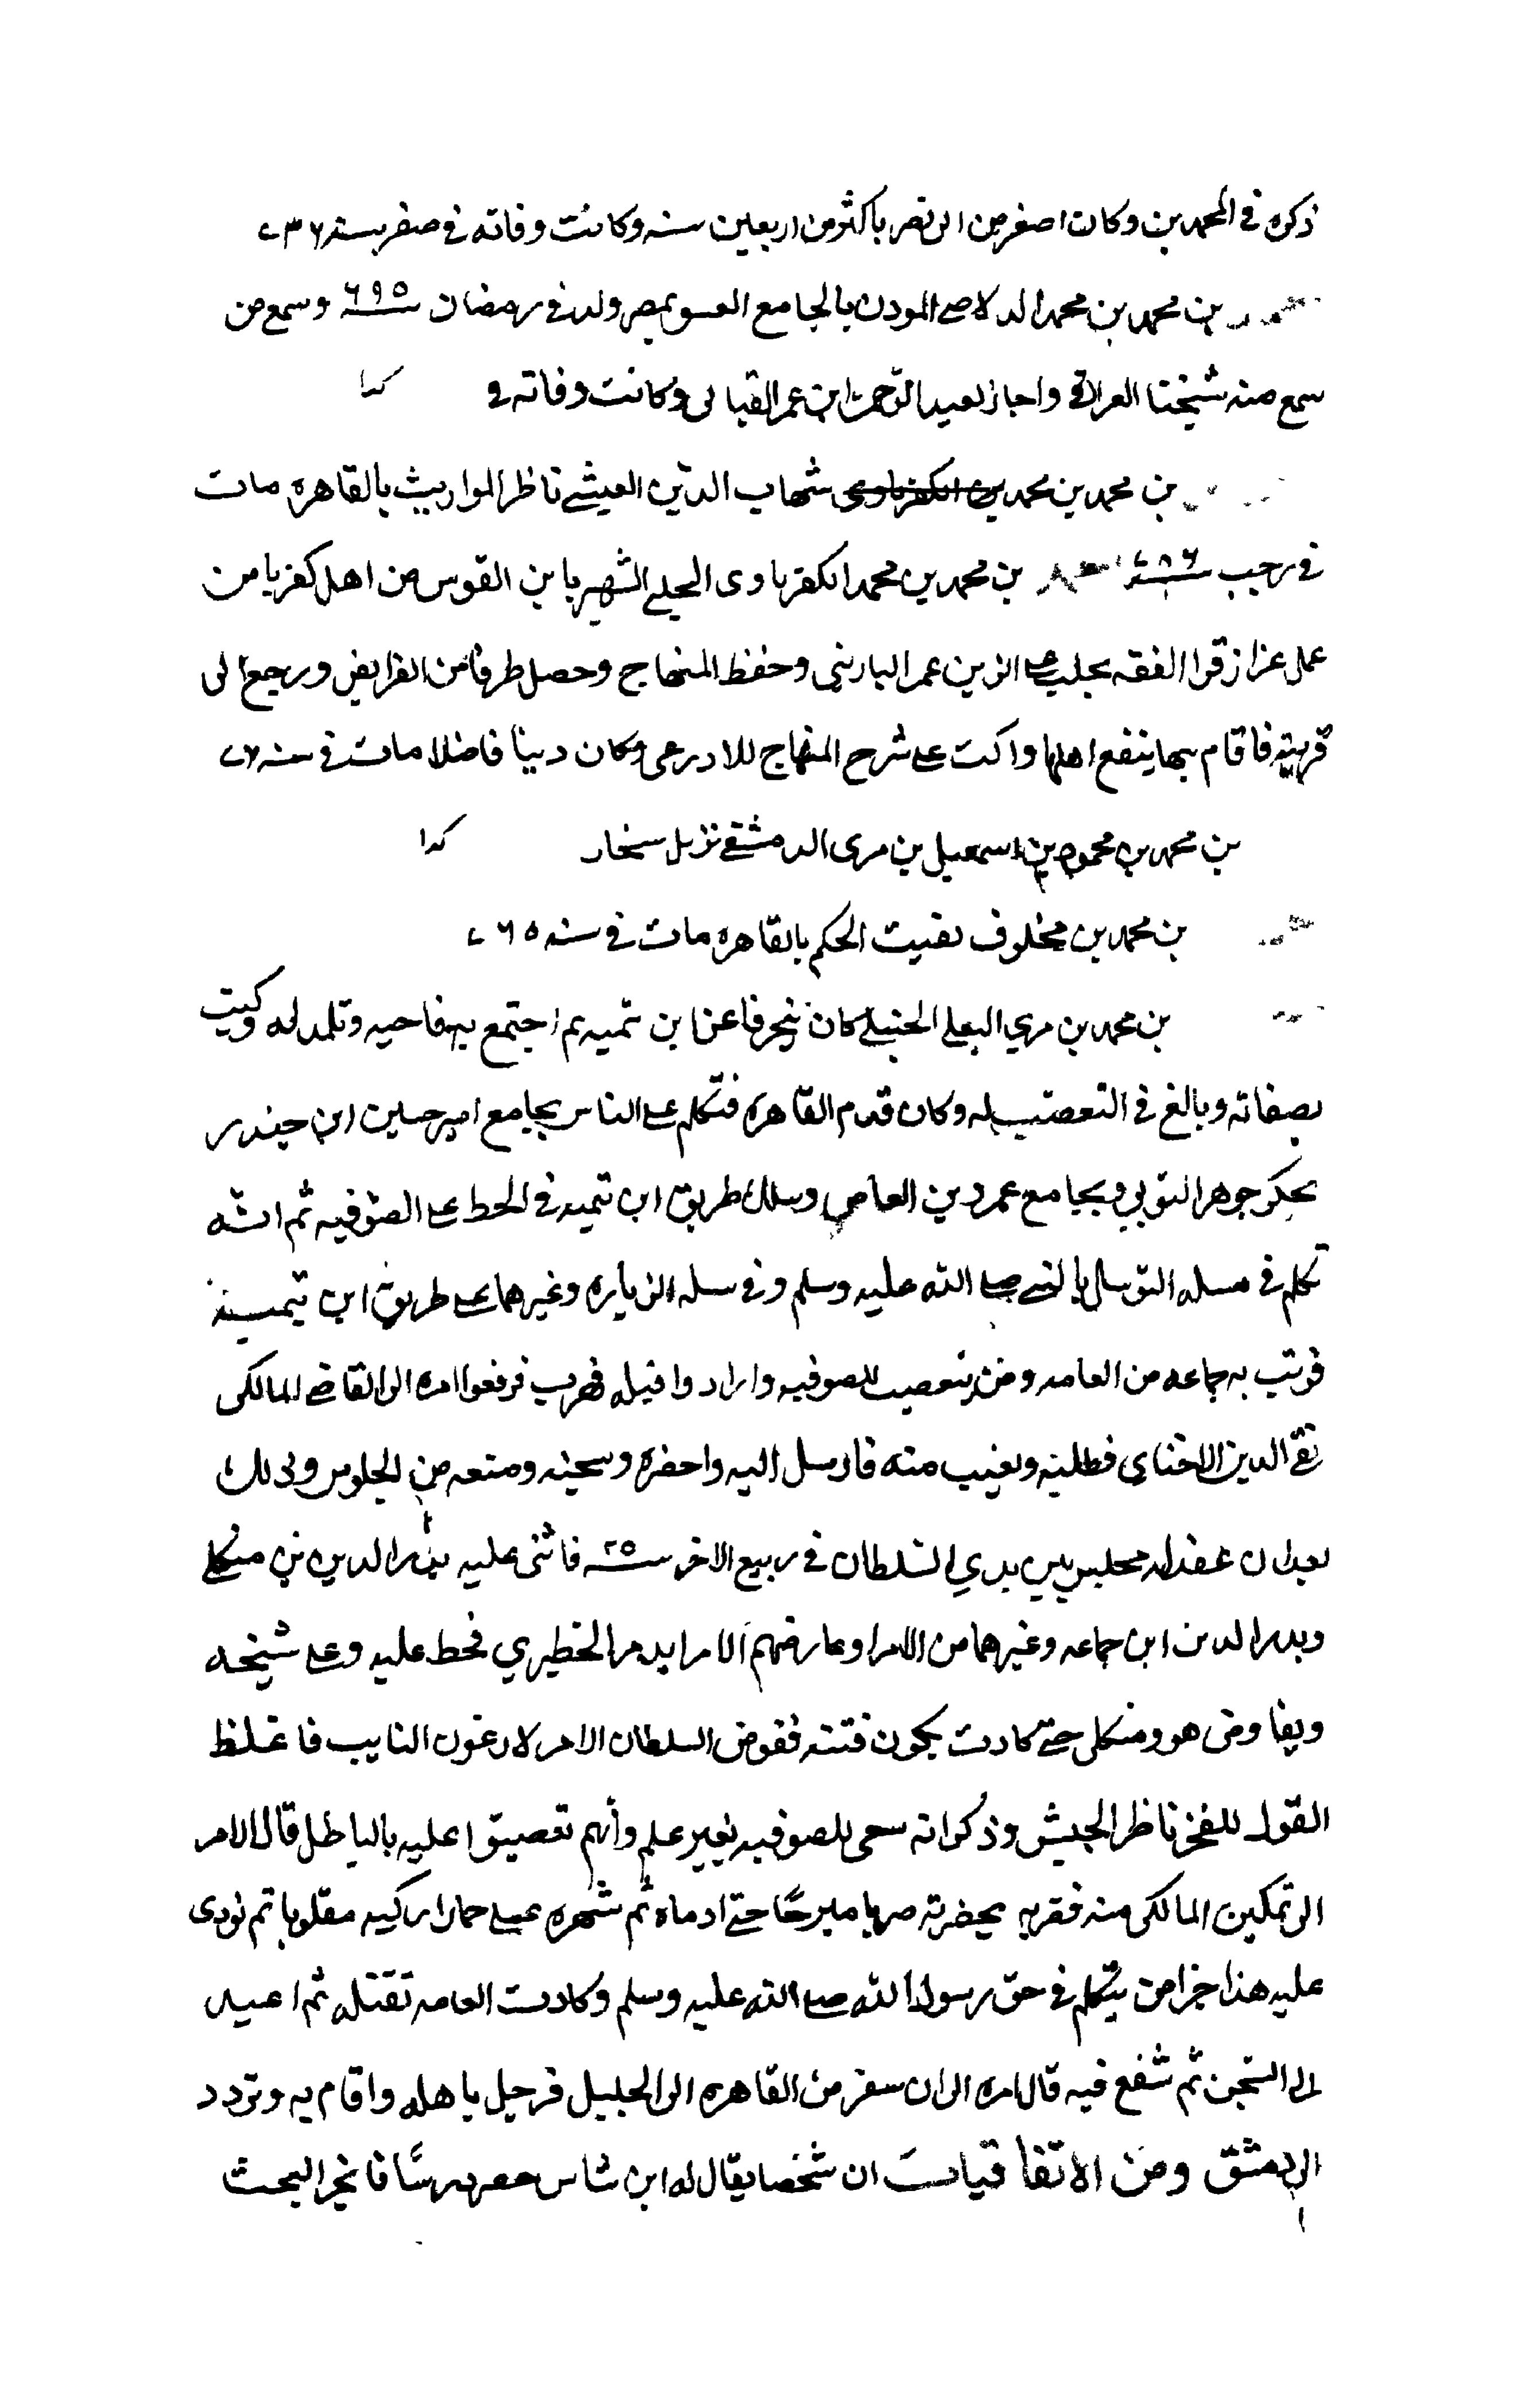 ذكره في المحمدين وكان اصغر من الى نصر باكثر من اربعين سنه وكانت وفاته في صفر سنة ٧٣٦
بن محمد بن محمد الدلاصي المودن بالجامع العسو بمصر ولد في رمضان سنة ٦٩٥ وسمع من
سمع منه شيخنا العراقي واجاز لعبد الرحمن ابن عمر القبابى وكانت وفاته في كدا
بن محمد بن محمد بن الكفرباوى شهاب الدين العيشي ناظر المواريث بالقاهرة مات
في رجب سنة ٧٥٦ بن محمد بن محمد الكفرباوى الحلبي الشهير بابن القوس من اهل كفربا من
عمل عزاز قرا الفقه بحلب على الزين عمر الباريني وحفظ المنهاج وحصل طرفا من الفرايض ورجع الى
قريته فاقام بها ينفع اهلها واكت على شرح المنهاج للادرعى وكان دينا فاضلا مات في سنه ٧٧
بن محمد بن محمود بن اسمعيل بن مرى الدمشقي نزيل سنجار كدا
بن محمد بن مخلوف نقيب الحكم بالقاهره مات في سنه ٧٦٥
بن محمد بن مري البعلي الحنبلي كان منحرفا عن ابن تميه ثم اجتمع به فاحبه وتلمد له وكتب
مصنفاته وبالغ في التعصب له وكان قدم القاهرة فتكلم على الناس بجامع امير حسين ابن جندر
بحكر جوهر النوبي وبجامع عمرو بن العاص وسلك طريق ابن تيميه في الحط على الصوفيه ثم انه
تكلم في مسله التوسل بالنبي صلى الله عليه وسلم وفي مسله الزياره وغيرهما على طريق ابن تيمية
فوثب به جماعه من العامه ومن يتعصب للصوفيه وارادوا قتله فهرب فرفعوا امره الى القاضي المالكي
تقي الدين الاخناي فطلبه وتغيب منه فارسل اليه واحضره وسجنه ومنعه من الجلوس وذلك
بعد ان عقد له مجلس بين يدي السلطان في ربيع الاخر سنة ٢٥ فاثنى عليه بدر الدين بن منكلي
وبدر الدين ابن جماعه وغيرهما من الامرا وعارضهم الامير ايدمر الخطيري فحط عليه وعلى شيخه
وتفاوض هو ومنكلى حتى كادت تكون فتنه ففوض السلطان الامر لارغون النايب فاغلظ
القول للفخر ناظر الجيش وذكر انه سعى للصوفيه بغير علم وأنهم تعصبوا عليه بالباطل فال الامر
الى تمكين المالكي منه فضربه بحضرته ضربا مبرحًا حتى ادماه ثم شهره على حمار اركبه مقلوبا ثم نودى
عليه هذا جزا من يتكلم في حق رسول الله صلى الله عليه وسلم وكادت العامه تقتله ثم اعيد
الى السجن ثم شفع فيه فال امره الى ان سفر من القاهره الى الخليل فرحل باهله واقام به وتردد
الى دمشق ومن الاتفاقيات ان شخصا يقال له ابن شاس حضر درسًا فانجر البحث